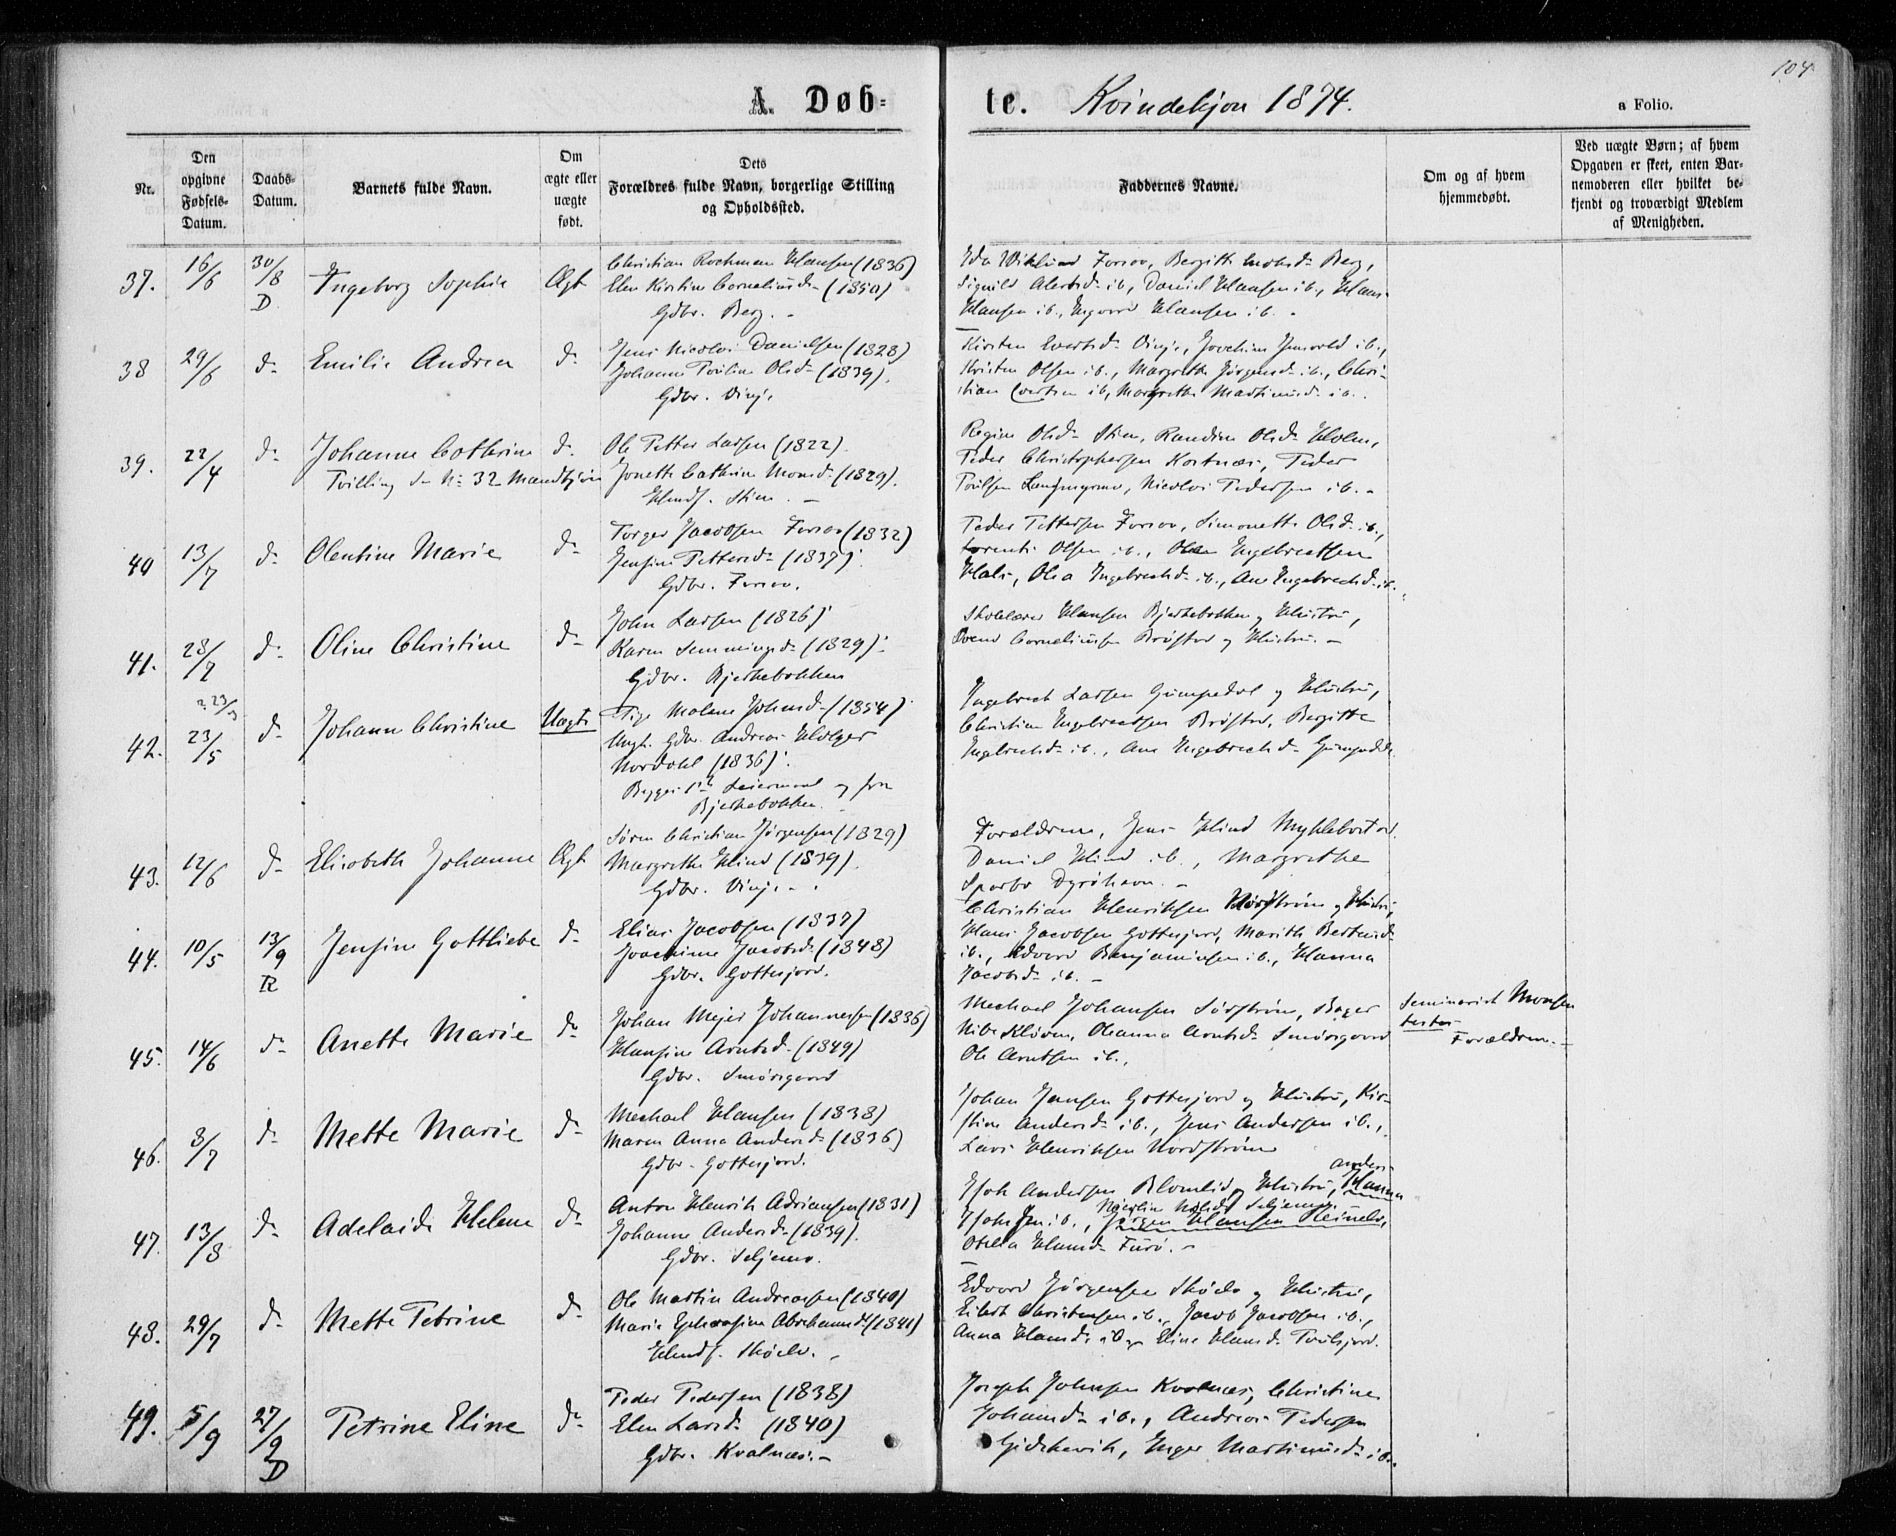 104.
A. Døb-
te. Kvindekjøn 1874.
a Folio.
Nr.
Den opgivne Fødsels-Datum.
Daabs-Datum.
Barnets fulde Navn.
Om ægte eller uægte født.
Dets Forældres fulde Navn, borgerlige Stilling og Opholdssted.
Faddernes Navne.
Om og af hvem hjemmedøbt.
Ved uægte Børn; af hvem Opgaven er skeet, enten Barnemoderen eller hvilket bekjendt og troværdigt Medlem af Menigheden.
37. 16/6 30/8 D. Ingeborg Sophie Ægt
Christian Hansen (1836)
Elen Kirstine Corneliusd. (1850)
Gdbr. Berg.
Daniel Hansen ib., Hans
Hansen ib., Ingvard Hansen ib.
38 29/6 d. Emilie Andrea d.
Jens Nicolai Danielsen (1828)
Johanna Olsd. (1839).
Gdbr. Vinje
Kristen Olsen ib., Margrethe Jørgensd. ib., Chri-
stian Evertsen ib., Margrethe Martinusd. ib.
39. 22/4 d. Johanne Cathrine d.
Tvilling d. No 32 Mandkjøn
Ole Petter Larsen (1822).
Jonette Cathrine Monsd. (1829).
Hmdf. Stien.
Regine Olsd. Stien, Randine Olsd. Holm,
Peder Christophersen Kastnæs, Peder
Poulsen Langmyrmo, Nicolai Pedersen ib.
40 13/7 d. Olentine Marie d.
Torger Jacobsen Forsov (1832)
Jensine Pettersd. (1837).
Gdbr. Forsov.
Peder Pettersen Forsov, Simonette Olsd. ib.,
Lorents Olsen ib., Olea Engebrectsen
Hals, Olea Ingebrechtsd. ib., Ane Engebrechtsd. ib.
41. 28/7 d. Oline Christine d.
John Larsen (1826)
Karen Semmingsd. (1829).
Gdbr. Bjerkebakken
Skolelærer Hansen Bjerkebakken og Hustru,
Svend Corneliussen Brøstad og Hustru.
42. ? 23/3 23/5 d. Johann Christine Uægte
Pige Malene Johnsd. (1854)
Ungk. Gdbr. Andreas Holger
Nordahl (1836).
Begges 1ste Leiermaal og fra
Bjerkebakken.
Ingebrect Larsen Gumpedal og Hustru,
Christian Engebrectsen Brøstad, Bergitte
Engebrechtsd. ib., Ane Engebrechtsd. Gumpedal
43. 12/6 d. Elisabeth Johanne Ægt
Søren Christian Jørgensen (1829)
Margrethe Hind (1839).
Gdbr. Vinje.
Forældrene, Jens Hind Myklebostad
Daniel Hind ib., Margrethe
Sparbo Dyrøhavn.
44. 10/5 13/9 R Jensine Gottliebe d.
Elias Jacobsen (1837)
Joachime Jacobsd. (1848)
Gdbr. Gottesjord.
Christian Henriksen Nordstrøm og Hustru,
Hans Jacobsen Gottesjord, Marith Berthusd.
ib., Edvard Benjaminsen ib., Hanna
Jacobsd. ib.
45. 14/6 d. Anette Marie d.
Johan Mejer Johannessen (1836)
Hansine Arntsd. (1849)
Gdbr. Smørsgaard
Mechael Johansen Sørstrøm,
Kløven, Oleanna Arntsd. Smørsgaard
Ole Arntsen ib.
Seminarist Monsen
testes
Forældrene.
46. 3/7 d. Mette Marie d.
Mechael Hansen (1838)
Maren Anna Andersd. (1836)
Gdbr. Gottesjord.
Johan Jensen Gottesjord og Hustru, Kir-
stine Andersd. ib., Jens Andersen ib.,
Lars Henriksen Nordstrøm
47. 13/8 d. Adelaide Helene d.
Anton Henrik Adriansen (1831)
Johanna Andersd. (1839).
Gdbr. Seljemo.
Anders-
Andersen Blomlid og Hustru, Hanna
Jørgen Hansen
Otelia Hansd. Furø.
48. 29/7 d. Mette Petrine d.
Ole Martin Andreassen (1840)
Marie Ephrosine Abrahamsd. (1841)
Hmdf. Skøelv.
Edvard Jørgensen Skøelv og Hustru,
Eilert Christensen ib., Jacob Jacobsen ib.,
Anna Hansd. ib. og Eline Hansd.
49. 5/9 27/9 D Petrine Eline d.
Peder Pedersen (1838)
Elen Larsd. (1840)
Gdbr. Kvalnæs.
Joseph Johnsen Kvalnæs, Christine
Johansd. ib., Andreas Pedersen
Gjeskevik, Inger Martinusd. ib.